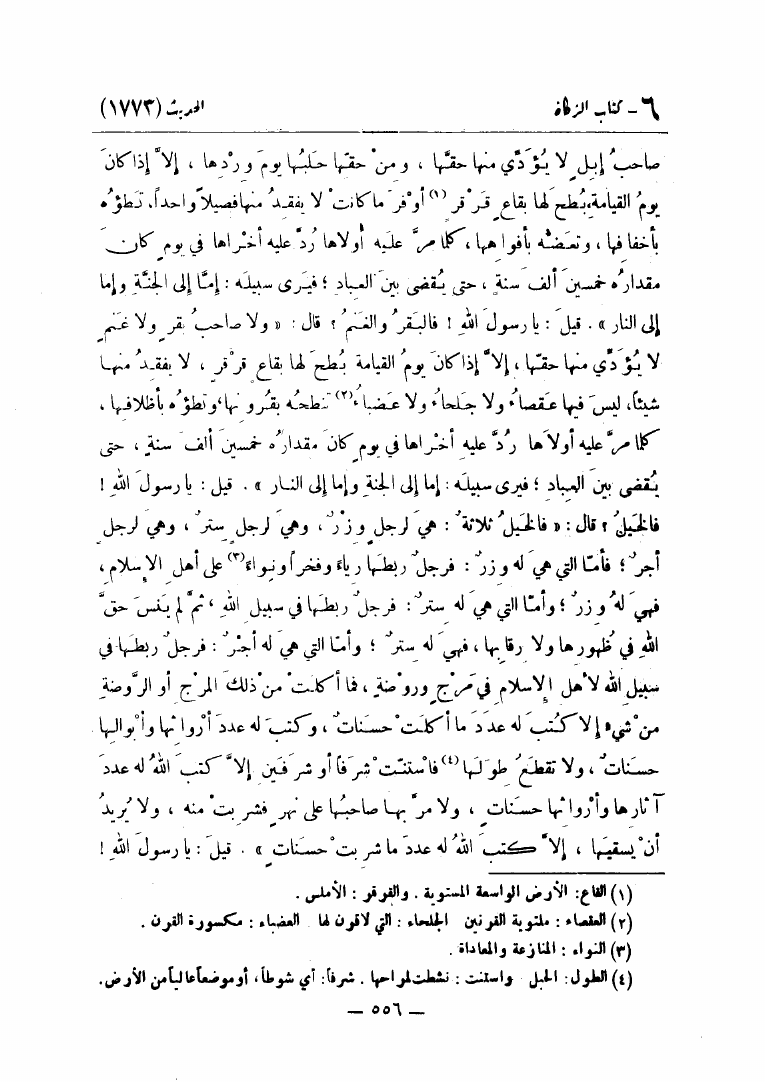 ٦ - كتاب الزكاة الحديث (١٧٧٣)
صاحبُ إِبلٍ لا يُؤَدِّي منها حقَّها ، ومنْ حقِّها حلَبُها يومَ وِرْدِها ، إِلاَّ إِذا كانَ
يومُ القيامةِ، بُطحَ لها بقاعٍ قَرْقرٍ (١) أوْفرَ ما كانتْ لا يفقدُ منها فصيلاً واحداً، تَطؤُه
بأخفافِها ، وتعَضُّه بأفواهِها ، كلما مرَّ عليه أولاها رُدَّ عليه أخْراها في يومٍ كان
مقدارُه خمسينَ ألفَ سنةٍ ، حتى يُقضى بينَ العبادِ ؛ فيَرى سبيلَه : إِمَّا إِلى الجنَّةِ وإِما
إِلى النارِ » . قيلَ : يا رسولَ اللهِ ! فالبقَرُ والغنَمُ ؟ قال : « ولا صاحبُ بقرٍ ولا غنمٍ
لا يُؤَدِّي منها حقّها ، إِلاَّ إِذا كانَ يومُ القيامة بُطحَ لها بقاعٍ قرْقرٍ ، لا يفقدُ منها
شيئاً، ليسَ فيها عقصاءُ ولا جلحاءُ ولا عضباءُ (٢) تنطحُه بقرونها، وتطؤُه بأظلافِها ،
كلما مرَّ عليه أولاَها رُدَّ عليه أخْراها في يومٍ كانَ مقدارُه خمسينَ ألفَ سنةٍ ، حتى
يُقضى بينَ العبادِ ؛ فيرى سبيلَه : إِما إِلى الجنةِ وإِما إِلى النارِ » . قيل : يا رسولَ اللهِ !
فالخيلُ ؟ قال : « فالخيلُ ثلاثةٌ : هيَ لرجلٍ وِزْرٌ ، وهيَ لرجلٍ سترٌ ، وهيَ لرجلٍ
أجرٌ ؛ فأمّا التي هيَ له وِزرٌ : فرجلٌ ربطَها رِياءً وفخراً ونِواءً (٣) على أهلِ الإِسلامِ ،
فهيَ لهُ وِزرٌ ؛ وأمّا التي هيَ له سترٌ : فرجلٌ ربطَها في سبيلِ اللهِ ، ثمَّ لم يَنسَ حقَّ
اللهِ في ظُهورِها ولا رِقابِها ، فهيَ له سترٌ ؛ وأمّا التي هيَ له أجْرٌ : فرجلٌ ربطَها في
سبيلِ الله لأهلِ الإِسلامِ في مَرْجٍ وروضةٍ ، فما أكلتْ منْ ذلكَ المرْجِ أو الرَّوضةِ
منْ شيءٍ إِلا كُتبَ له عددَ ما أكلَتْ حسناتٌ ، وكتبَ له عددَ أرْواثها وأبْوالها
حسناتٌ ، ولا تقطعُ طِوَلَها (٤) فاستنّتْ شرَفاً أو شرفَينِ إِلاَّ كتبَ اللهُ له عددَ
آثارِها وأرْواثِها حسناتٍ ، ولا مرَّ بها صاحبُها على نهرٍ فشربتْ منه ، ولا يُريدُ
أنْ يسقيَها ، إِلاَّ كتبَ اللهُ له عددَ ما شربتْ حسناتٍ » . قيلَ : يا رسولَ اللهِ !
(١) القاع: الأرض الواسعة المستوية . والقرقر : الأملس .
(٢) العقصاء : ملتوية القرنين الجلحاء : التي لا قرون لها العضباء : مكسورة القرن .
(٣) النواء : المنازعة والمعاداة .
(٤) الطول: الحبل واستنت : نشطت لمراحها . شرفاً: أي شوطاً، أو موضعاً عالياً من الأرض.
— ٥٥٦ —